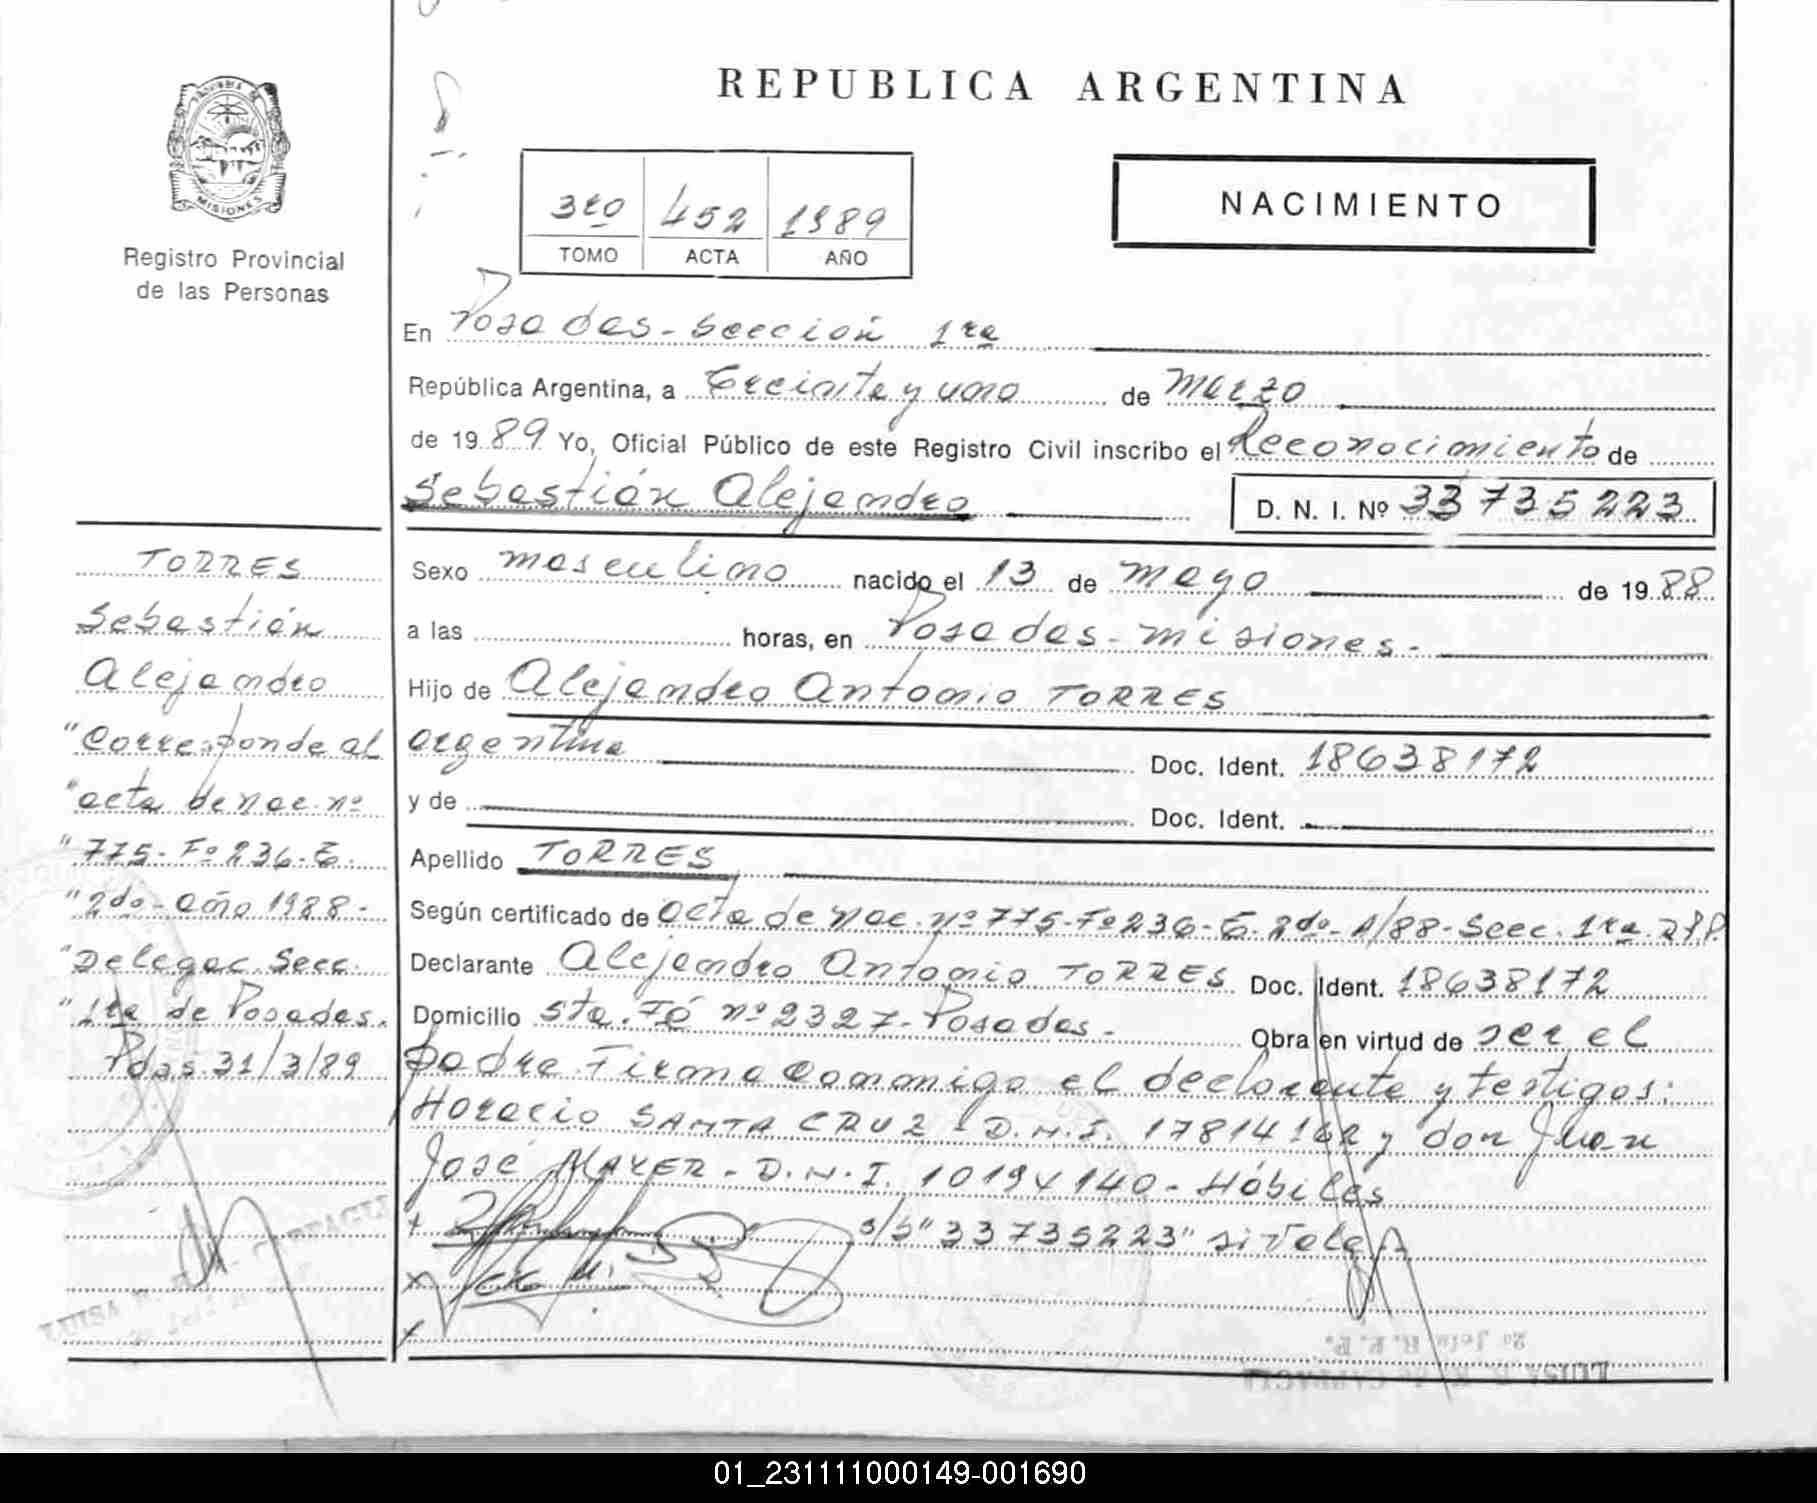 REPUBLICA ARGENTINA
MISIONES
Registro Provincial
de las Personas
3ro 452 1989
TOMO ACTA AÑO
NACIMIENTO
En Posadas - Sección 1ra
República Argentina, a treinta y uno de marzo
de 1989 Yo, Oficial Público de este Registro Civil inscribo el Reconocimiento de
Sebastián Alejandro D. N. I. Nº 33735223
Sexo masculino nacido el 13 de mayo de 1988
a las horas, en Posadas - misiones -
Hijo de Alejandro Antonio TORRES
argentina Doc. Ident. 18638172
y de Doc. Ident.
Apellido TORRES
Según certificado de acta de nac. nº 775-Fº236-T-2do-A/88-Secc. 1ra
Declarante Alejandro Antonio TORRES Doc. Ident. 18638172
Domicilio Sta. Fé nº 2327 - Posadas - Obra en virtud de ser el
padre. Firma conmigo el declarante y testigos:
Horacio SANTA CRUZ - D.N.I. 17814162 y don Juan
José MAYER - D.N.I. 10194140 - Hábiles
s/b "33735223" si vale
TORRES
Sebastián
Alejandro
"Corresponde al
"acta de nac. nº
"775-Fº236-T.
"2do - año 1988-
"Delegac. Secc.
"1ra de Posadas.
Pdas 31/3/89
2º Jefe R. P. P.
01_231111000149-001690